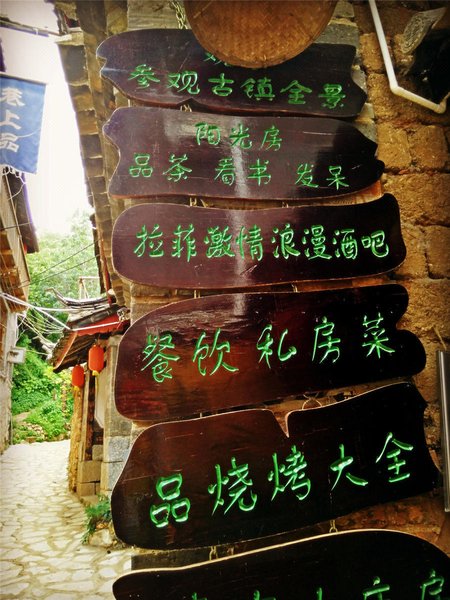 参观古镇全景
阳光房
品茶 看书 发呆
拉菲激情浪漫酒吧
餐饮私房菜
品烧烤大全